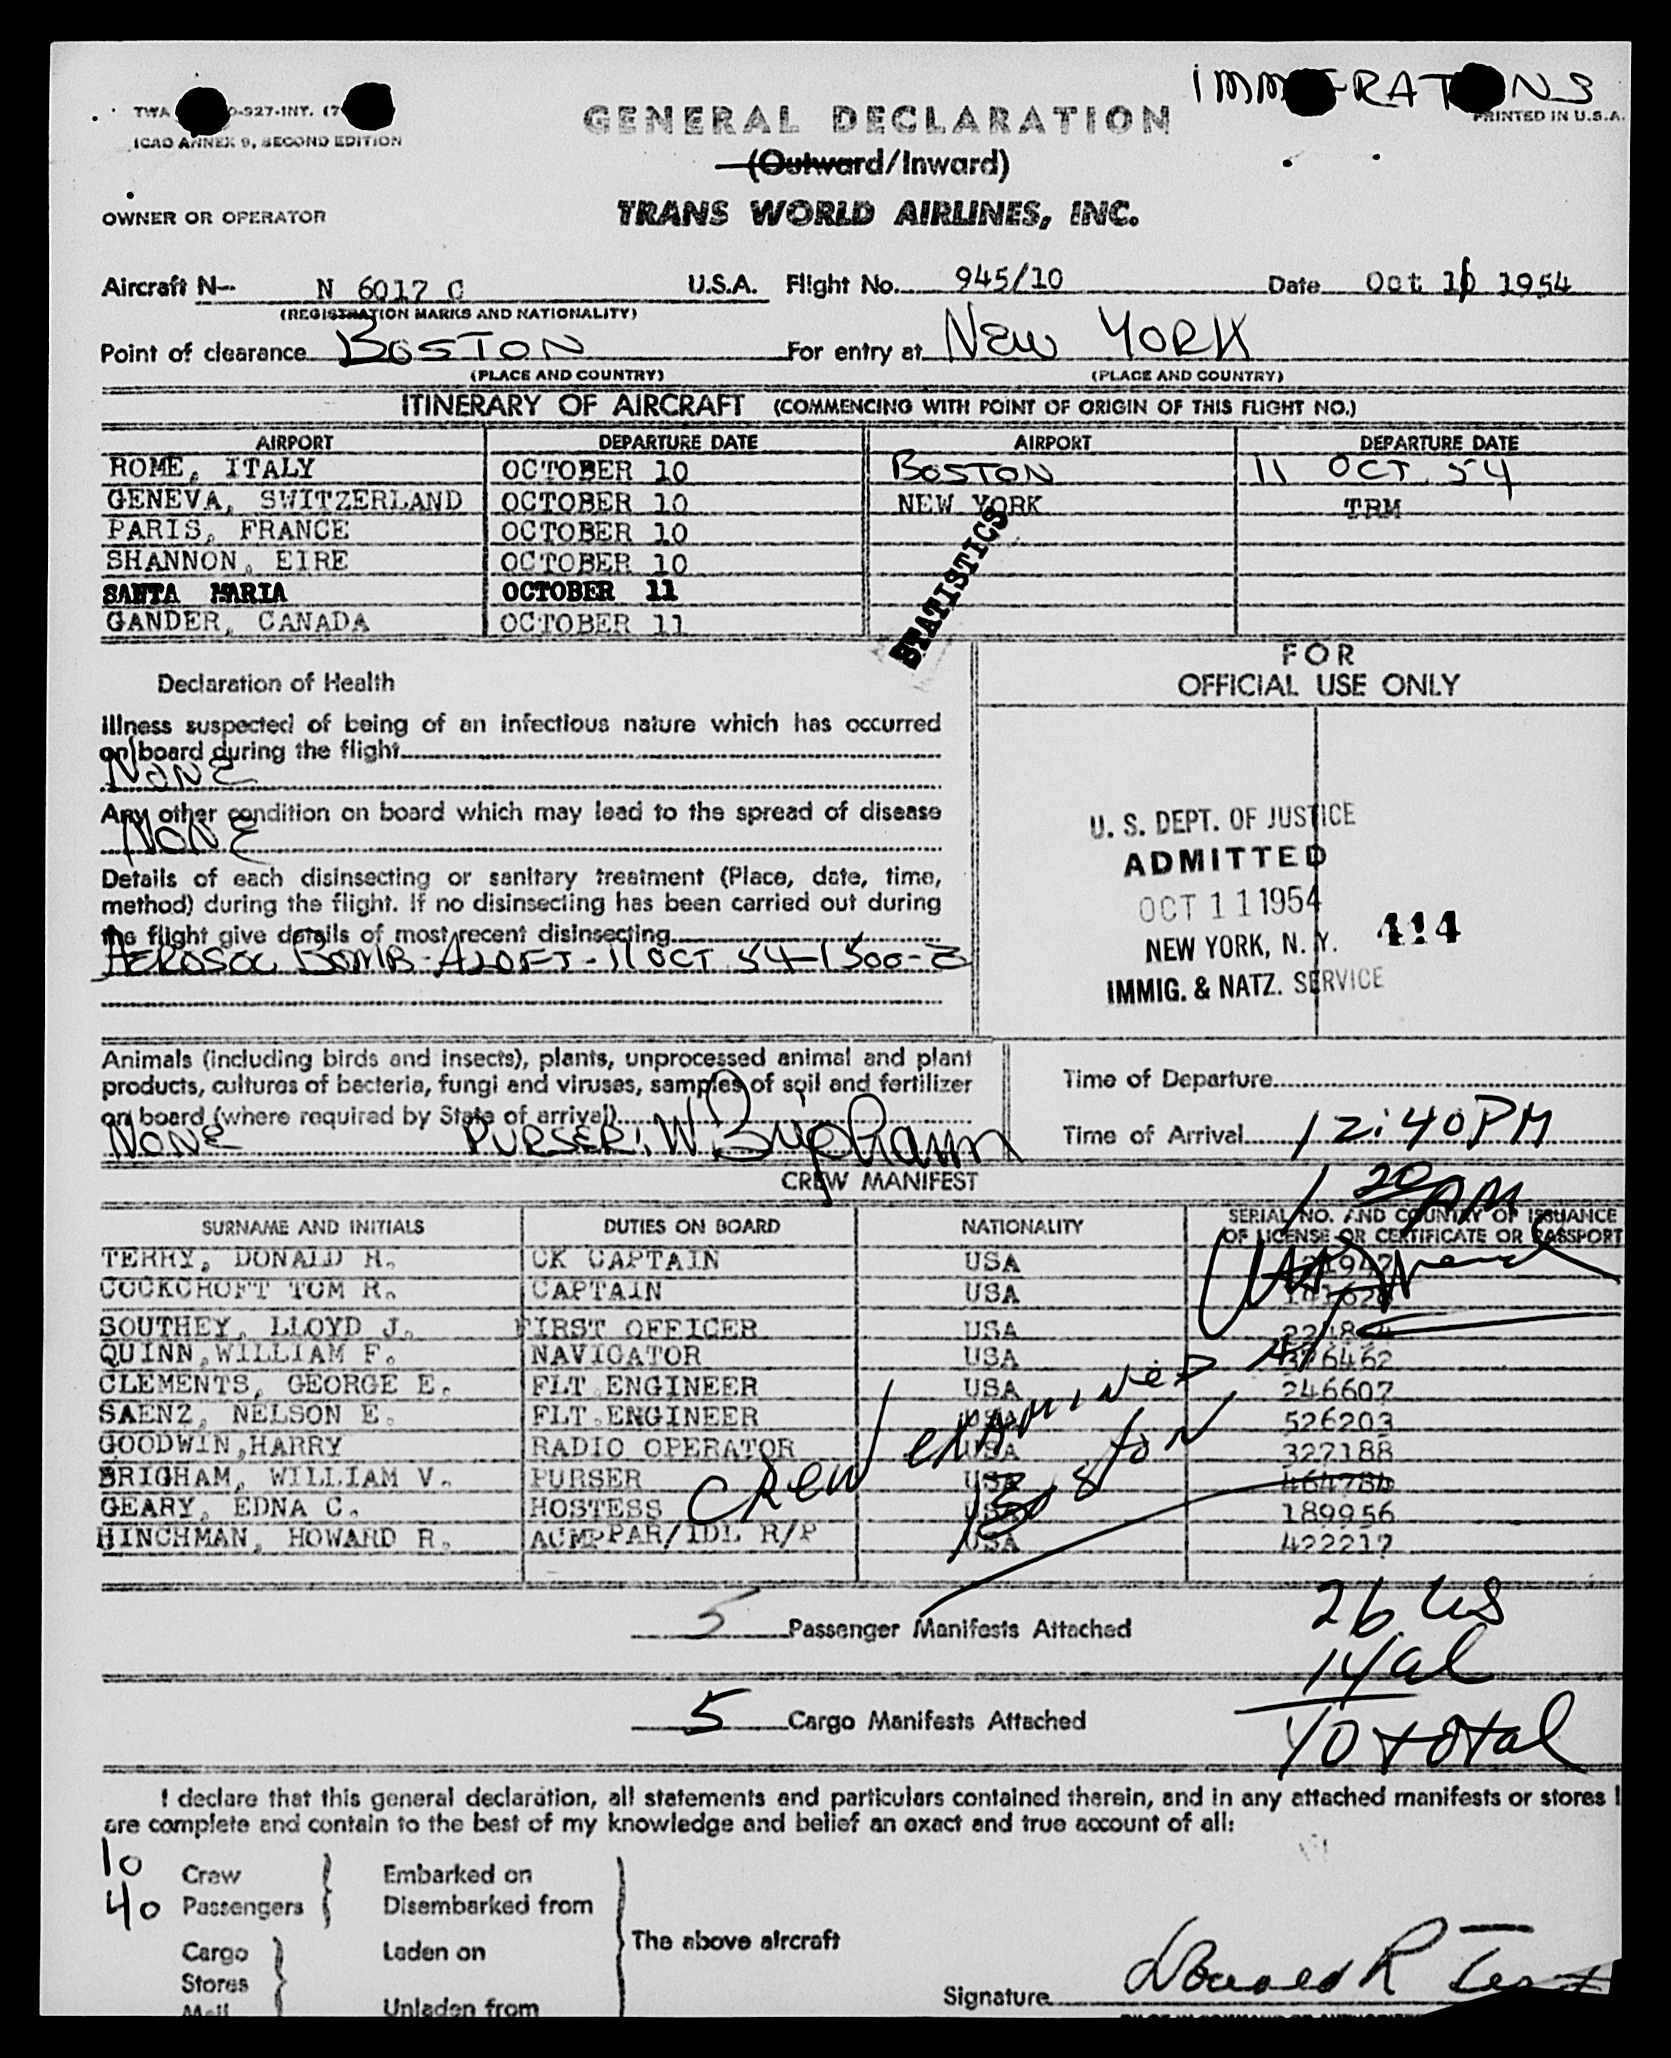 IMM RAT NS
TWA -927-INT. (7
ICAO ANNEX 9, SECOND EDITION
PRINTED IN U.S.A.
GENERAL DECLARATION
(Outward/Inward)
OWNER OR OPERATOR TRANS WORLD AIRLINES, INC.
Aircraft N— N 6017 C U.S.A. Flight No. 945/10 Date Oct 1 1954
(REGISTRATION MARKS AND NATIONALITY)
Point of clearance BOSTON For entry at NEW YORK
(PLACE AND COUNTRY) (PLACE AND COUNTRY)
ITINERARY OF AIRCRAFT (COMMENCING WITH POINT OF ORIGIN OF THIS FLIGHT NO.)
AIRPORT DEPARTURE DATE AIRPORT DEPARTURE DATE
ROME, ITALY OCTOBER 10 BOSTON 11 OCT 54
GENEVA, SWITZERLAND OCTOBER 10 NEW YORK TRM
PARIS, FRANCE OCTOBER 10
SHANNON, EIRE OCTOBER 10
SANTA MARIA OCTOBER 11
GANDER, CANADA OCTOBER 11
STATISTICS
Declaration of Health
Illness suspected of being of an infectious nature which has occurred
on board during the flight
NONE
Any other condition on board which may lead to the spread of disease
NONE
Details of each disinsecting or sanitary treatment (Place, date, time,
method) during the flight. If no disinsecting has been carried out during
the flight give details of most recent disinsecting
AEROSOL BOMB-ALOFT-11 OCT 54-1500-Z
FOR
OFFICIAL USE ONLY
U. S. DEPT. OF JUSTICE
ADMITTED
OCT 11 1954
NEW YORK, N. Y. 414
IMMIG. & NATZ. SERVICE
Animals (including birds and insects), plants, unprocessed animal and plant
products, cultures of bacteria, fungi and viruses, samples of soil and fertilizer
on board (where required by State of arrival)
NONE PURSER: W Brigham
Time of Departure
Time of Arrival 12:40PM
1 20 PM
CREW MANIFEST
SURNAME AND INITIALS DUTIES ON BOARD NATIONALITY SERIAL NO. AND COUNTRY OF ISSUANCE
OF LICENSE OR CERTIFICATE OR PASSPORT
TERRY, DONALD R. CK CAPTAIN USA
COCKCROFT TOM R. CAPTAIN USA
SOUTHEY, LLOYD J. FIRST OFFICER USA
QUINN, WILLIAM F. NAVIGATOR USA 376462
CLEMENTS, GEORGE E. FLT ENGINEER USA 246607
SAENZ, NELSON E. FLT ENGINEER USA 526203
GOODWIN, HARRY RADIO OPERATOR USA 327188
BRIGHAM, WILLIAM V. PURSER USA 464784
GEARY, EDNA C. HOSTESS USA 189956
HINCHMAN, HOWARD R. ACMPPAR/IDL R/P USA 422217
Crew examined at
Boston
5 Passenger Manifests Attached
26 US
14 al
40 total
5 Cargo Manifests Attached
I declare that this general declaration, all statements and particulars contained therein, and in any attached manifests or stores l
are complete and contain to the best of my knowledge and belief an exact and true account of all:
10 Crew Embarked on
40 Passengers Disembarked from
The above aircraft
Cargo Laden on
Stores
Mail Unladen from
Signature Donald R Terry